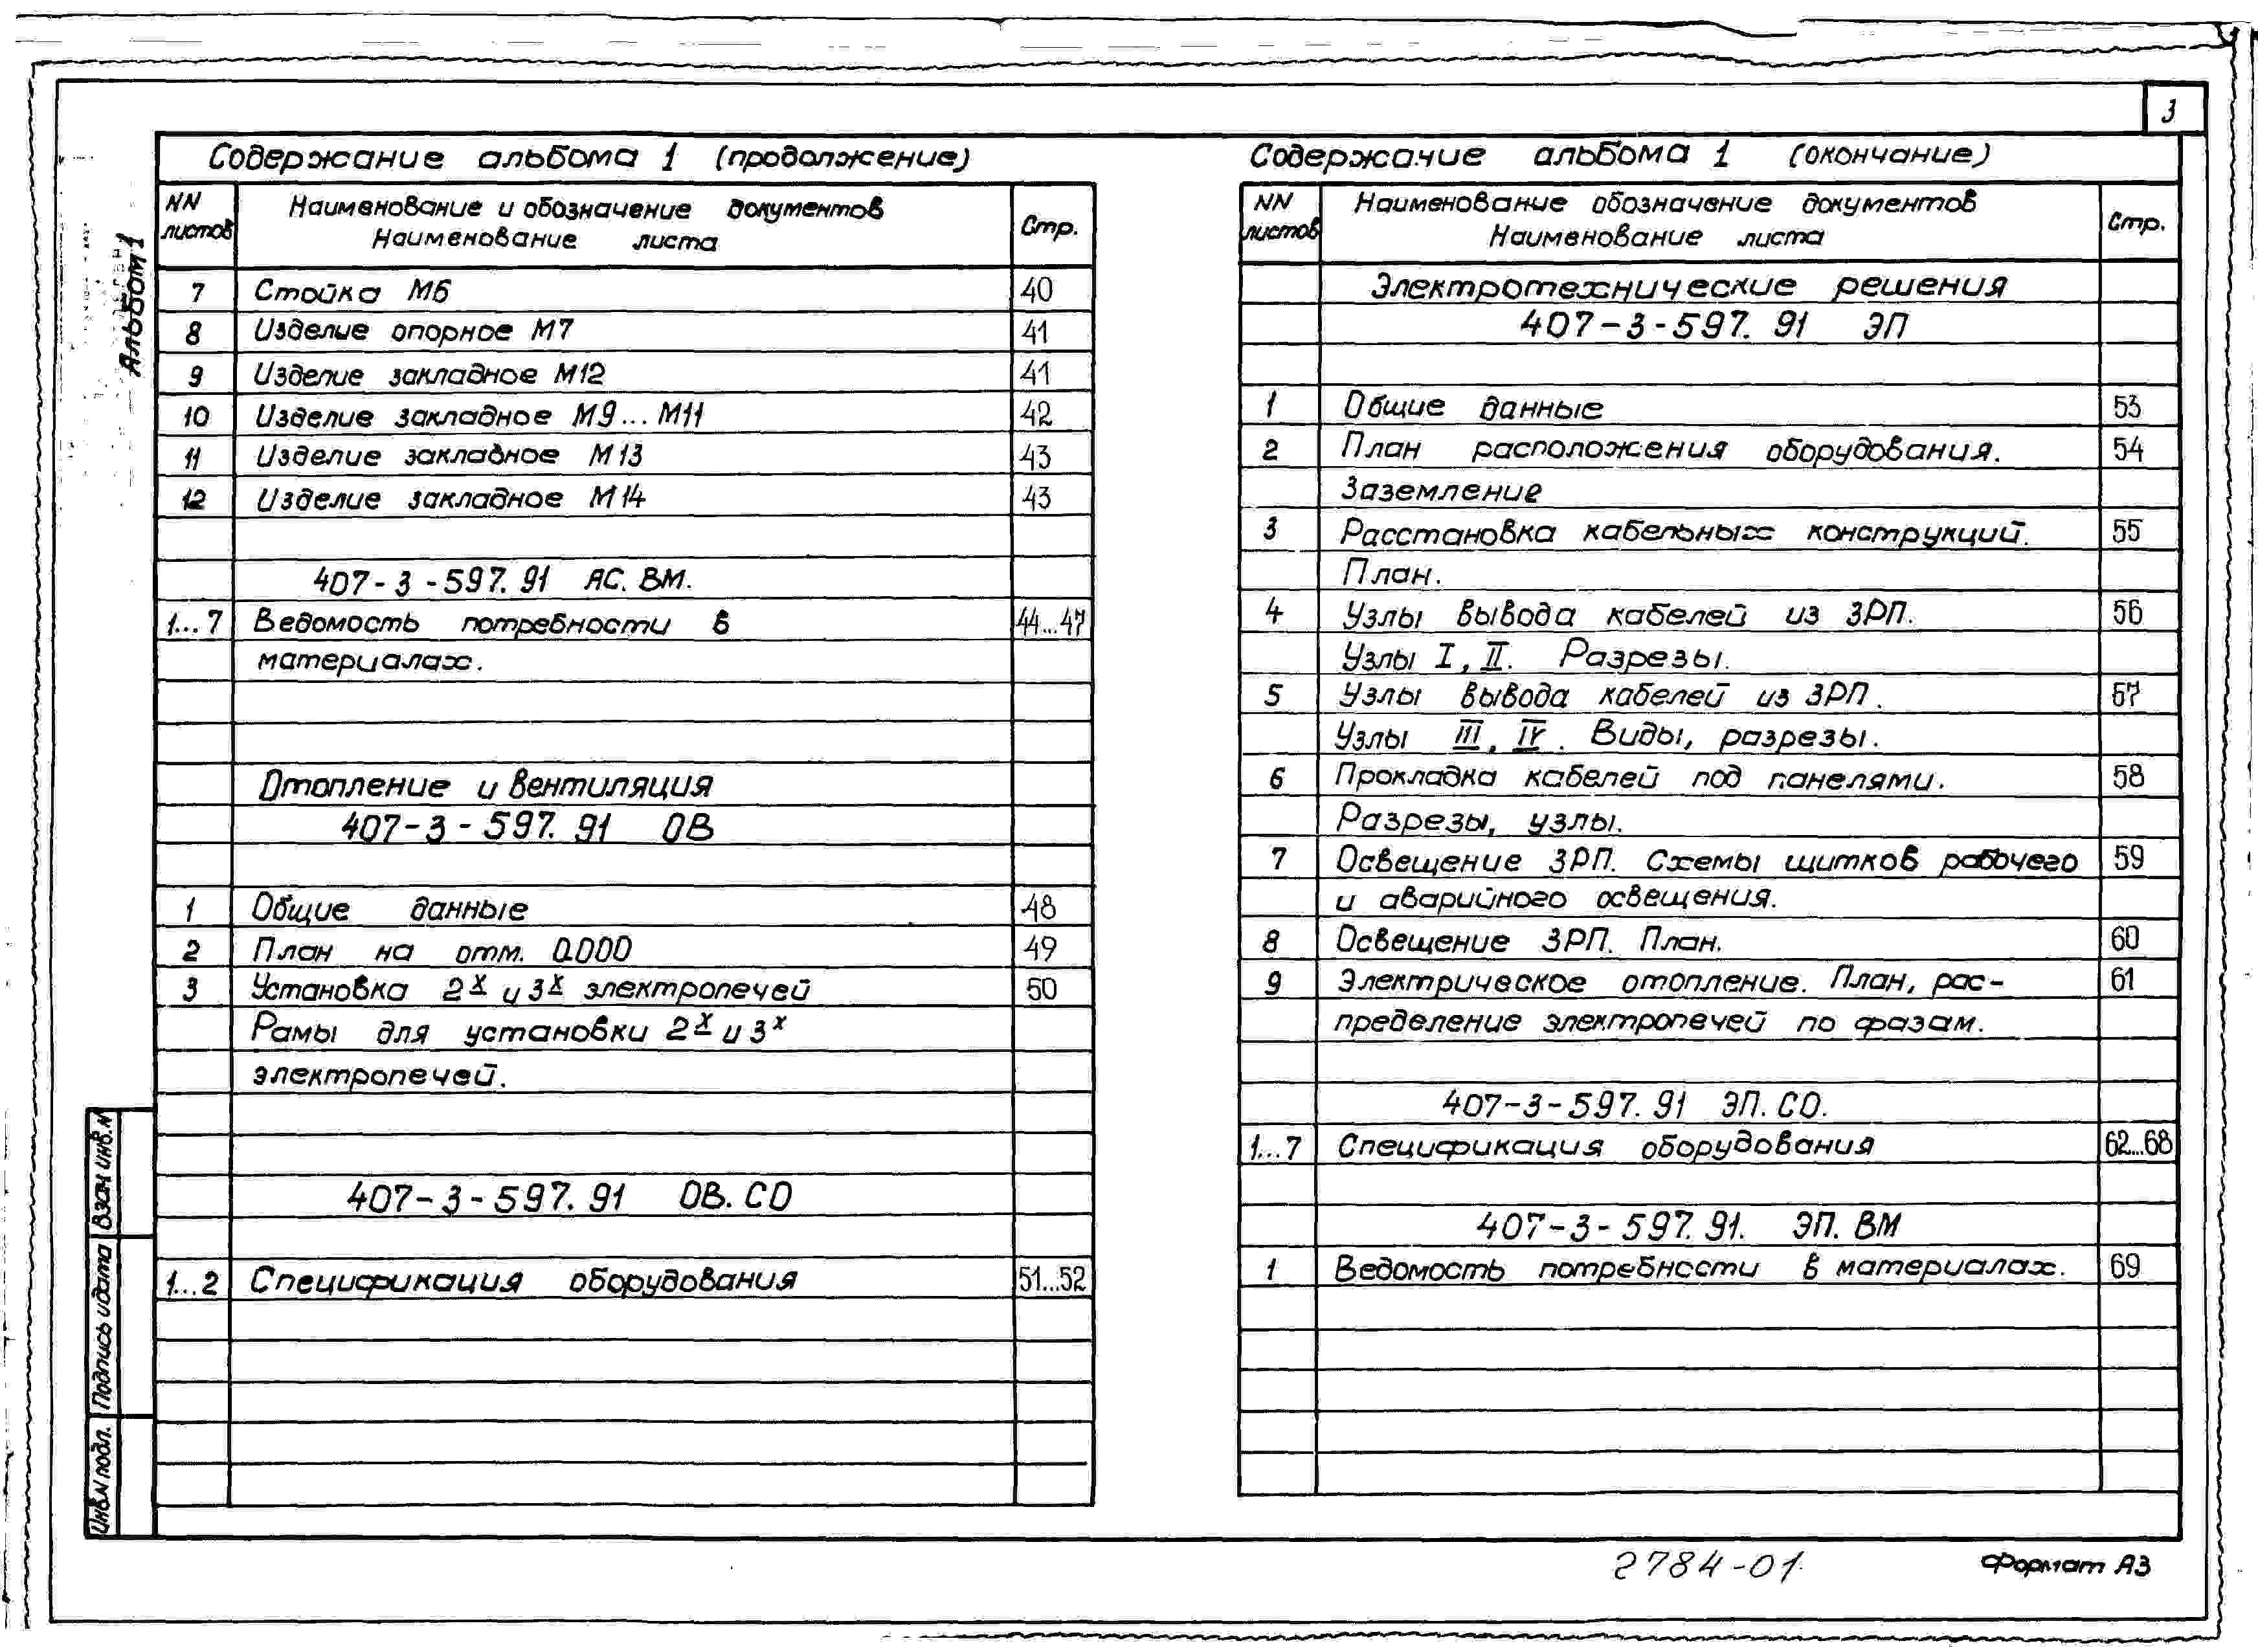 3
Альбом 1
Содержание альбома 1 (продолжение)
NN листов
Наименование и обозначение документов
Наименование листа
Стр.
7 Стойка М6 40
8 Изделие опорное М7 41
9 Изделие закладное М12 41
10 Изделие закладное М9...М11 42
11 Изделие закладное М13 43
12 Изделие закладное М14 43
407-3-597.91 АС. ВМ.
1...7 Ведомость потребности в 44...47
материалах.
Отопление и вентиляция
407-3-597.91 ОВ
1 Общие данные 48
2 План на отм. 0.000 49
3 Установка 2х и 3х электропечей 50
Рамы для установки 2х и 3х
электропечей.
407-3-597.91 ОВ. СО
1...2 Спецификация оборудования 51...52
Содержание альбома 1 (окончание)
NN листов
Наименование обозначение документов
Наименование листа
Стр.
Электротехнические решения
407-3-597.91 ЭП
1 Общие данные 53
2 План расположения оборудования. 54
Заземление
3 Расстановка кабельных конструкций. 55
План.
4 Узлы вывода кабелей из ЗРП. 56
Узлы I, II. Разрезы.
5 Узлы вывода кабелей из ЗРП. 57
Узлы III, IV. Виды, разрезы.
6 Прокладка кабелей под панелями. 58
Разрезы, узлы.
7 Освещение ЗРП. Схемы щитков рабочего 59
и аварийного освещения.
8 Освещение ЗРП. План. 60
9 Электрическое отопление. План, рас- 61
пределение электропечей по фазам.
407-3-597.91 ЭП. СО.
1...7 Спецификация оборудования 62...68
407-3-597.91. ЭП. ВМ
1 Ведомость потребности в материалах. 69
Взам инв.N
Подпись и дата
Инв.N подл.
2784-01
Формат А3